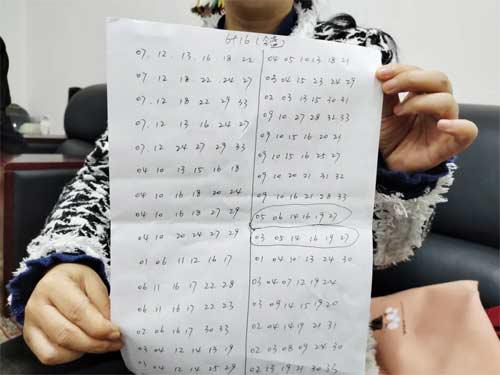 6+16(全蓝)
07. 12. 13. 16 18 22
07. 12 18 22 24 27
07. 12 18 22 29 33
07. 12 13 16 24 27
07. 12 24 27 29 33
04 10 13 15 16 18
04 10 16 18 20 24
04 10 16 18 27 29
04 10 20 24 27 29
01 06 11 12 16 17
06 11 16 17 22 28
06 11 16 17 22 23
02 06 16 17 30 33
03 04 12 14 13 19
04 12 14 25 29
04 05 10 13 18 21
03 04 15 23 24 29
02 03 13 15 30 31
09 10 27 28 32 33
09 10 15 16 20 21
09 10 15 16 25 27
09 10 20 21 31 32
09 10 16 21 28 33
05 06 14 16 19 27
03 05 14 16 19 27
01 04 10 13 24 30
03 04 07 12 19 24
03 09 14 15 19 20
02 04 14 19 21 31
02 03 08 09 24 30
02 13 19 21 30 33